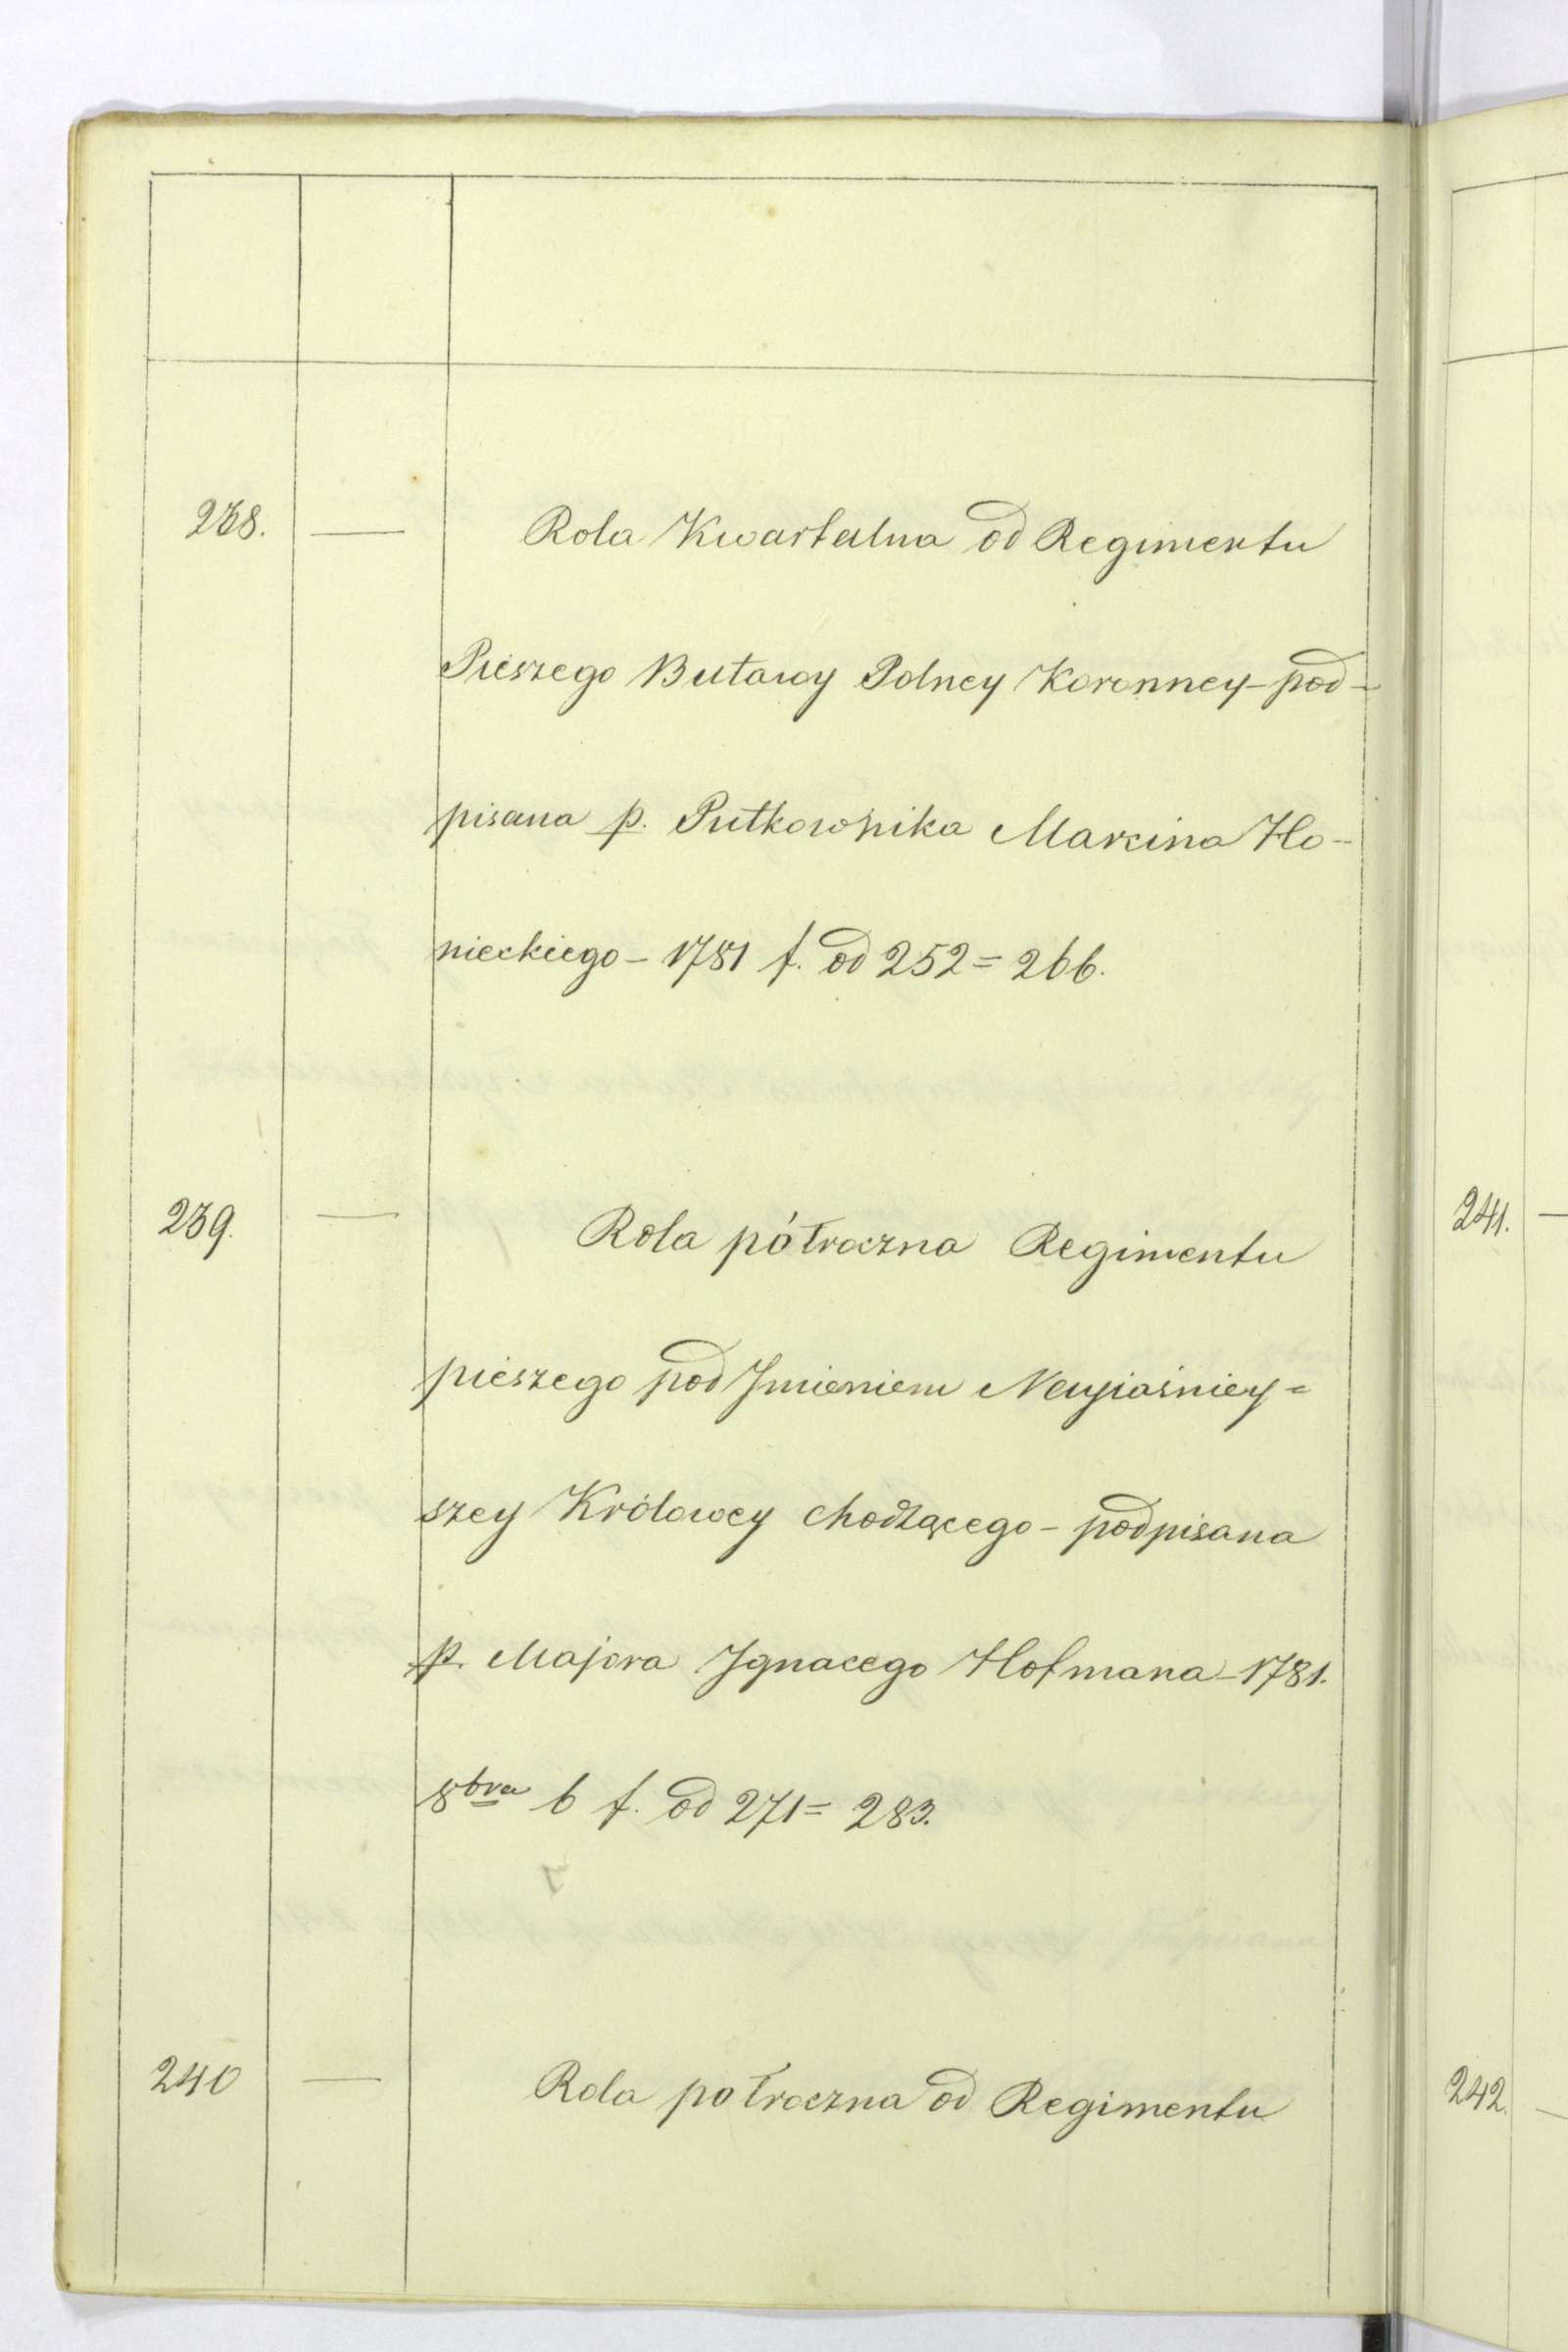 238. — Rola Kwartalna od Regimentu
Pieszego Buławy Polney Koronney – pod-
pisana p. Pułkownika Marcina Ho-
nieckiego – 1781 f. od 252 = 266.
239. — Rola półroczna Regimentu
pieszego pod Jmieniem Nayiaśniey=
szey Królowey chodzącego – podpisana
p. Majora Jgnacego Hofmana – 1781.
8bra 6 f. od 271 = 283.
240 — Rola połroczna od Regimentu
241. —
242. —